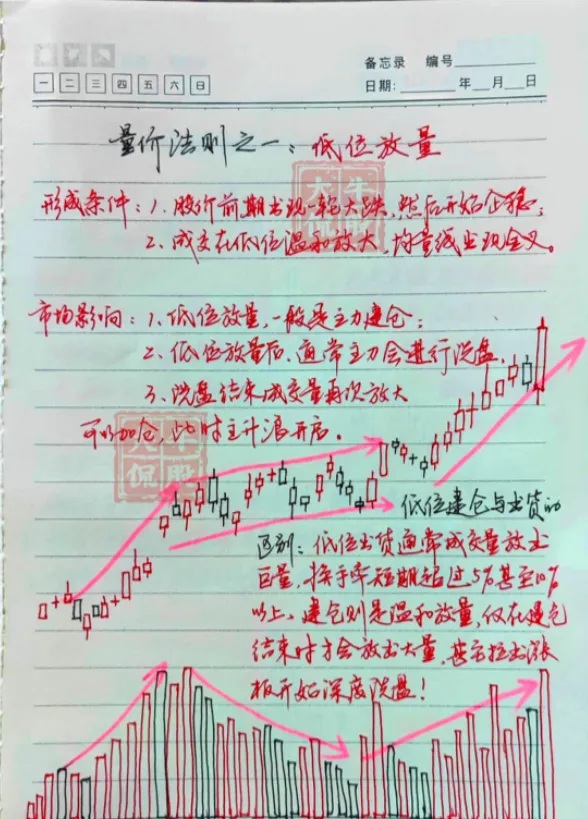 备忘录 编号
一 二 三 四 五 六 日
日期: 年 月 日
量价法则之一:低位放量
大牛侃股
形成条件:1、股价前期出现一轮大跌,然后开始企稳;
2、成交在低位温和放大,均量线出现金叉。
市场影响:1、低位放量,一般是主力建仓;
2、低位放量后,通常主力会进行洗盘,
3、洗盘结束成交量再次放大
可以加仓,此时主升浪开启。
大牛侃股
低位建仓与出货的
区别:低位出货通常成交量放出
巨量,换手率短期超过5%甚至10%
以上。建仓则是温和放量,仅在建仓
结束时才会放出大量,甚至拉出涨
板开始深度洗盘!